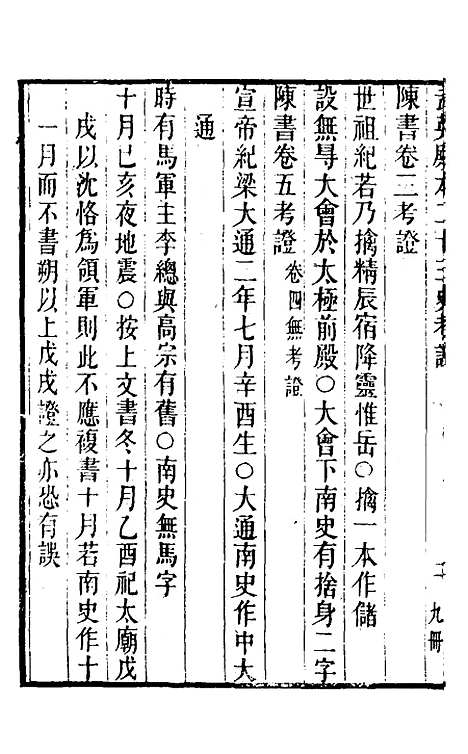 武英殿本二十三史考證
九冊
陳書卷二考證
世祖紀若乃擒精辰宿降靈惟岳〇擒一本作儲
設無㝵大會於太極前殿〇大會下南史有捨身二字
陳書卷五考證 卷四無考證
宣帝紀梁大通二年七月辛酉生〇大通南史作中大
通
時有馬軍主李總與高宗有舊〇南史無馬字
十月己亥夜地震〇按上文書冬十月乙酉祀太廟戊
戌以沈恪爲領軍則此不應複書十月若南史作十
一月而不書朔以上戊戌證之亦恐有誤